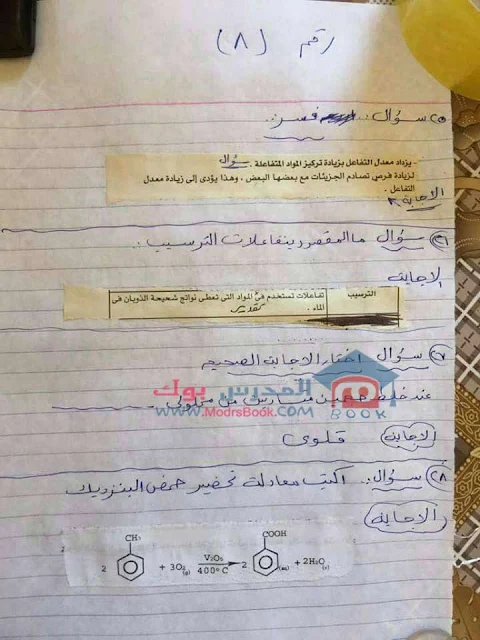 رقم (٨)
٢٥ سؤال : فسر :
- يزداد معدل التفاعل بزيادة تركيز المواد المتفاعلة . سؤال
لزيادة فرص تصادم الجزيئات مع بعضها البعض ، وهذا يؤدى إلى زيادة معدل
التفاعل .
الاجابة
٢٦ سؤال ما المقصود بتفاعلات الترسيب :
الاجابة
الترسيب تفاعلات تستخدم فى المواد التى تعطى نواتج شحيحة الذوبان فى
الماء . تقدير
٢٧ سؤال اختار الاجابة الصحيحه
المدرس بوك
www.ModrsBook.com
BOOK
عند خلط حجمين من محلولى
الاجابة قلوى
٢٨ سؤال : اكتب معادلة تحضير حمض البنزويك
الاجابة
CH₃ COOH
2 + 3O₂(g) V₂O₅ 400°C 2 (aq) + 2H₂O(v)